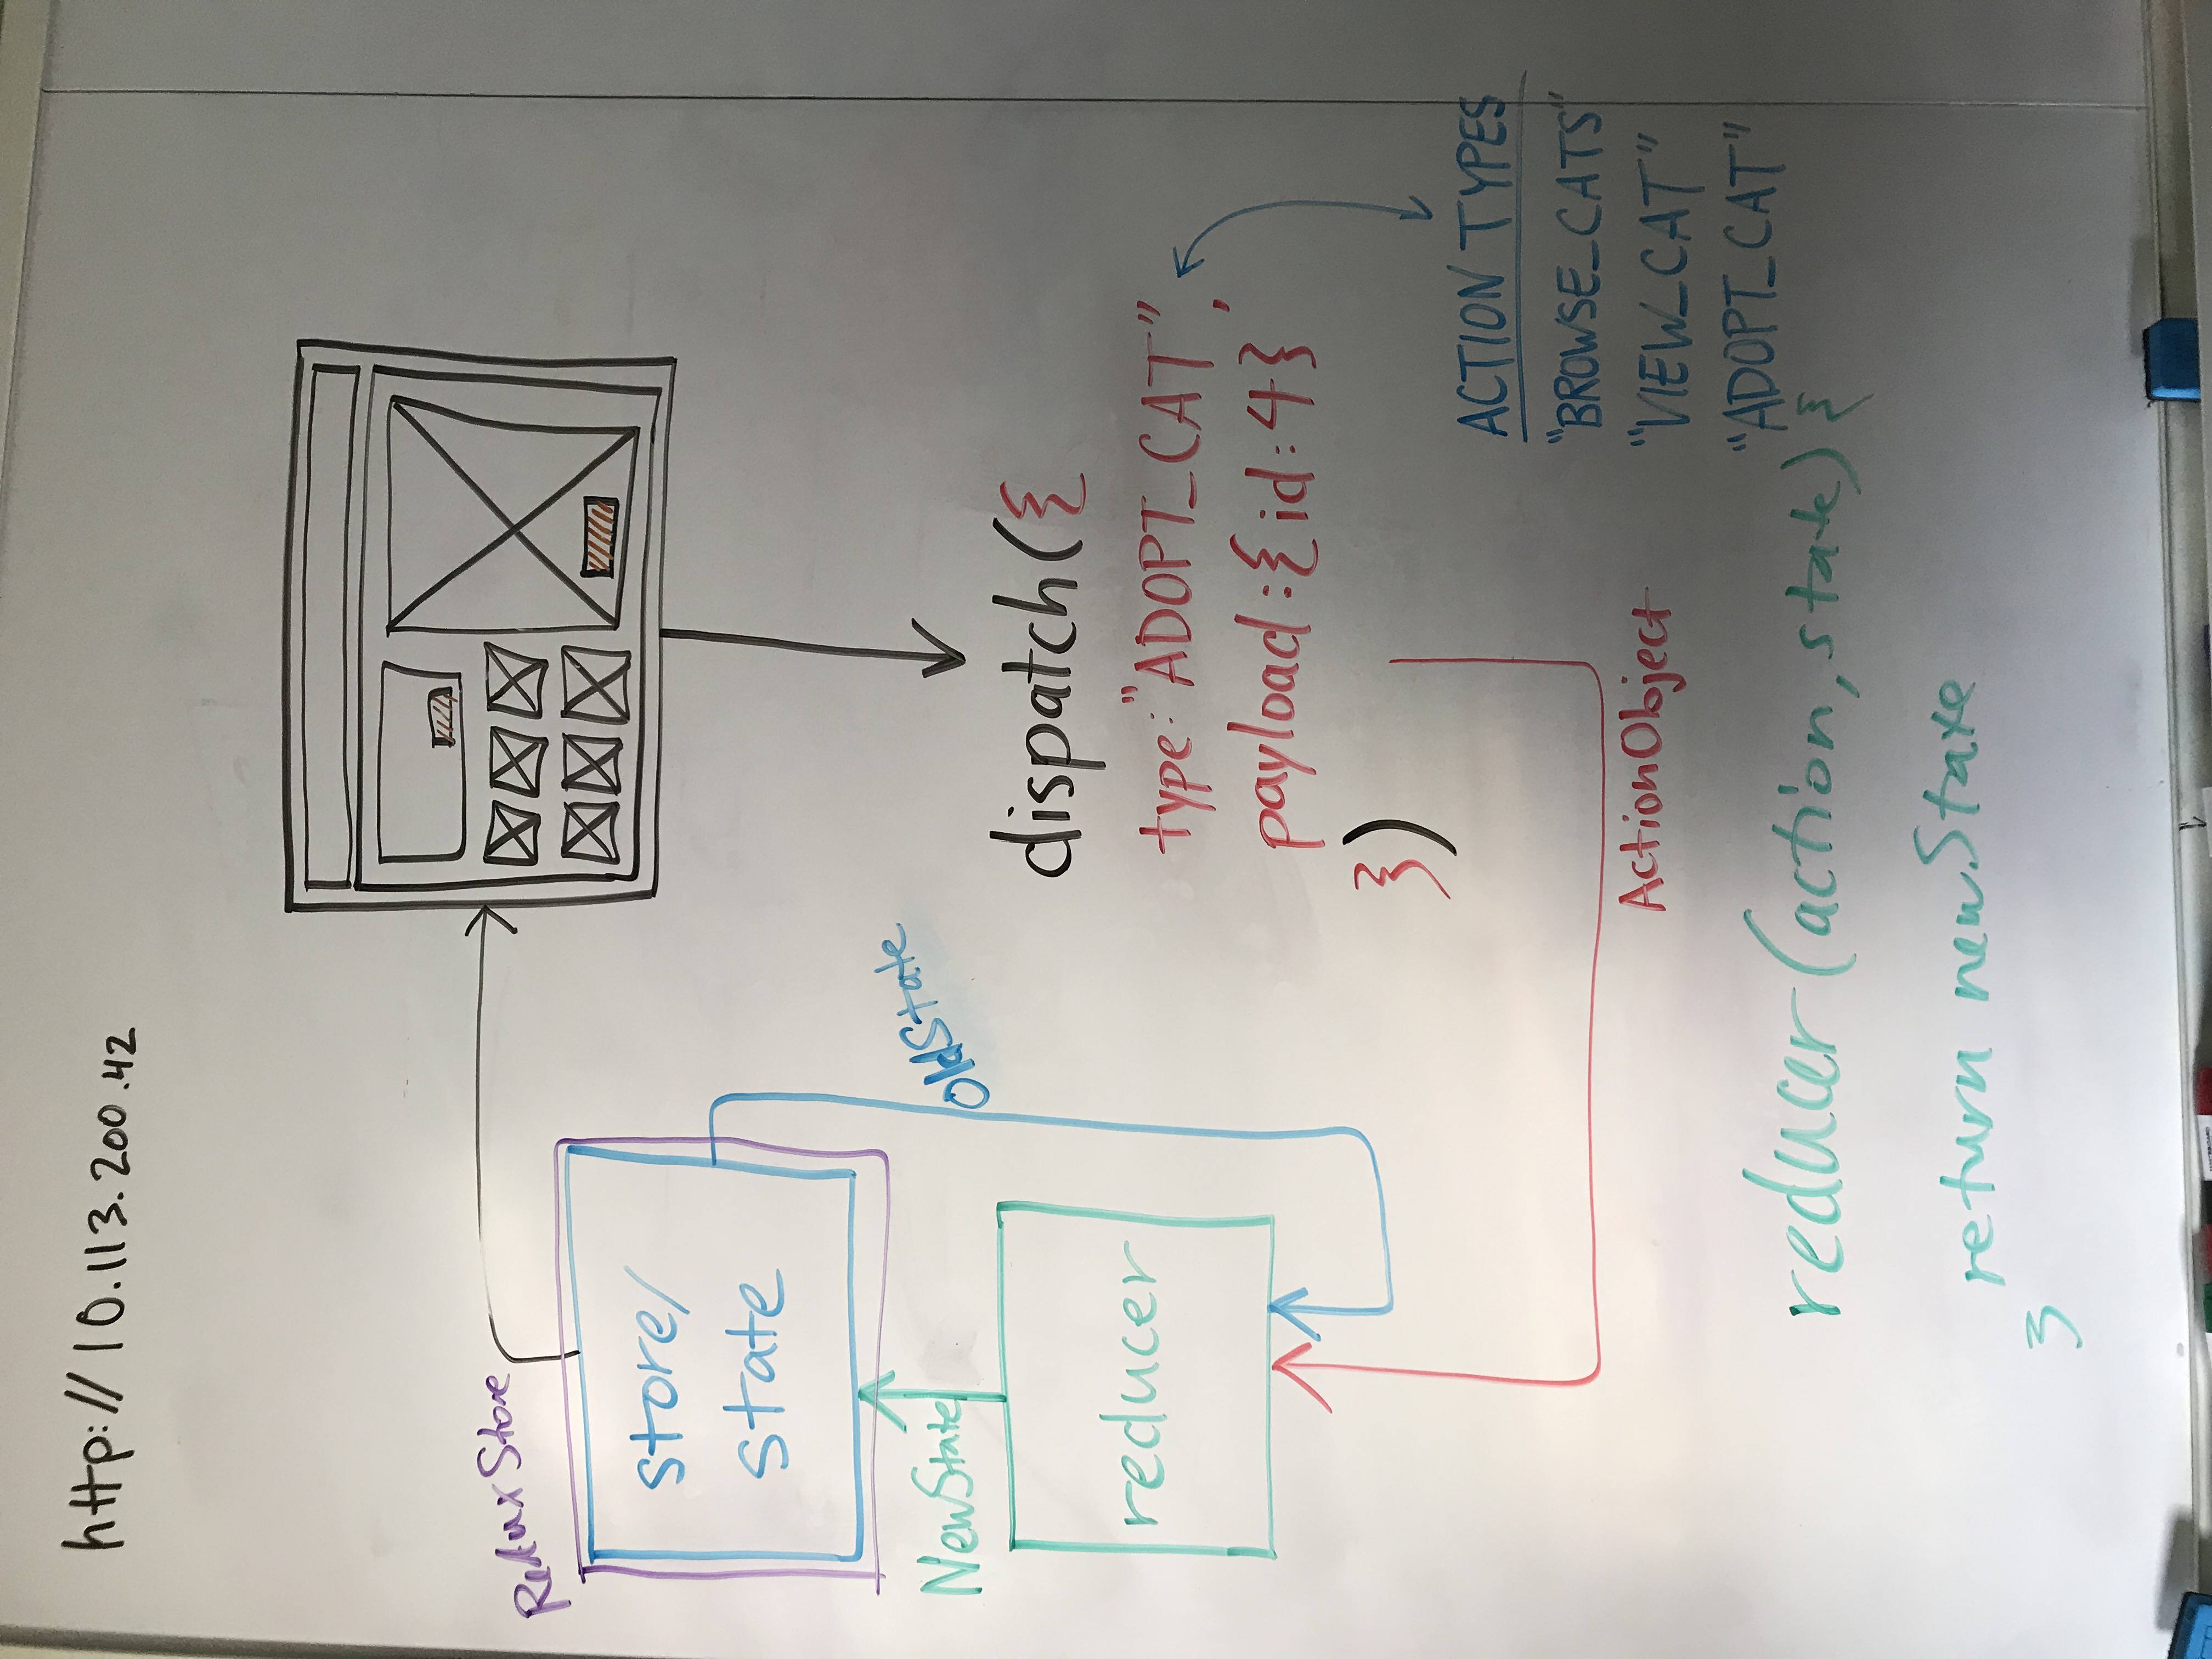 http://10.113.200.42
Redux Store
store/
state
NewState
OldState
reducer
dispatch({
type: "ADOPT_CAT",
payload:{id:4}
})
ACTION TYPES
"BROWSE_CATS"
"VIEW_CAT"
"ADOPT_CAT"
ActionObject
reducer(action, state) {
return newState
}